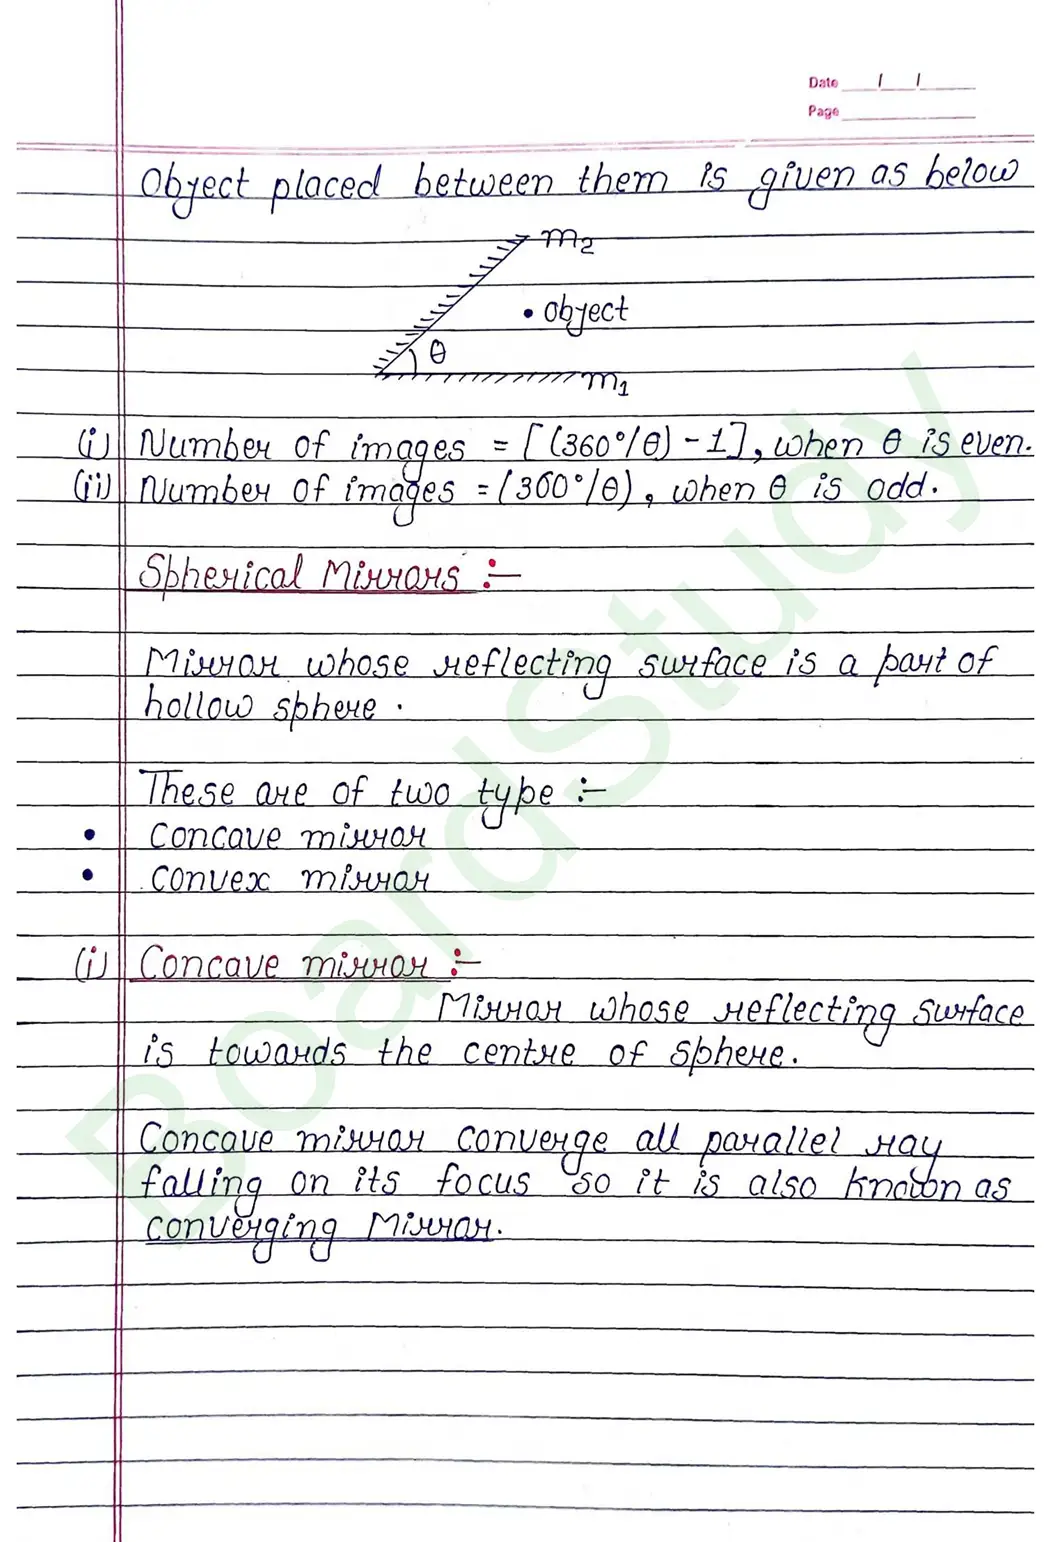 Date / /
Page
Object placed between them is given as below
m2
• Object
θ
m1
(i) Number of images = [(360°/θ) - 1], when θ is even.
(ii) Number of images = (360°/θ), when θ is odd.
Spherical Mirrors :-
Mirror whose reflecting surface is a part of
hollow sphere.
These are of two type :-
• Concave mirror
• Convex mirror
(i) Concave mirror :-
Mirror whose reflecting surface
is towards the centre of sphere.
Concave mirror converge all parallel ray
falling on its focus so it is also known as
converging Mirror.
BoardStudy